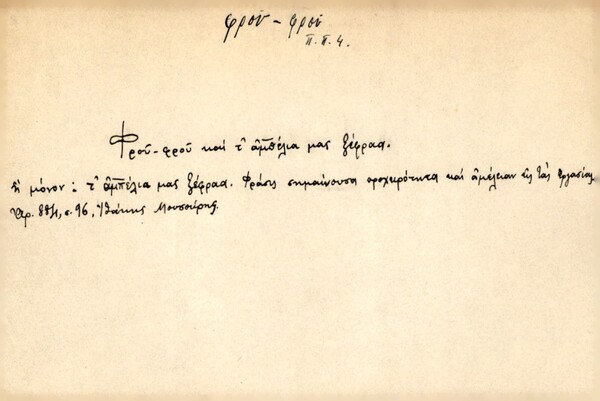 φρού - φρού
Π.Π.4.
Φρού-φρού καί τ' ἀμπέλια μας ξέφραα.
ἤ μόνον: τ' ἀμπέλια μας ξέφραα. Φράσις σημαίνουσα προχειρότητα καί ἀμέλειαν εἰς τάς ἐργασίας
Χφ. σ. 96, Ἰθάκης Μουσούρης